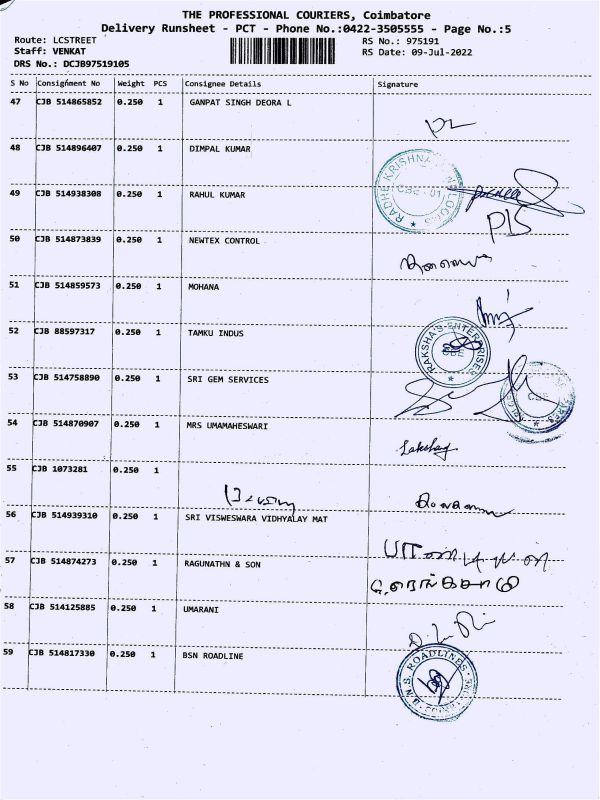 THE PROFESSIONAL COURIERS, Coimbatore
Delivery Runsheet - PCT - Phone No.:0422-3505555 - Page No.:5
Route: LCSTREET RS No.: 975191
Staff: VENKAT RS Date: 09-Jul-2022
DRS No.: DCJB97519105
S No Consignment No Weight PCS Consignee Details Signature
47 CJB 514865852 0.250 1 GANPAT SINGH DEORA L
48 CJB 514896407 0.250 1 DIMPAL KUMAR
RADHE KRISHNA
CBE - 01
49 CJB 514938308 0.250 1 RAHUL KUMAR
50 CJB 514873839 0.250 1 NEWTEX CONTROL
51 CJB 514859573 0.250 1 MOHANA
52 CJB 88597317 0.250 1 TAMKU INDUS
RAKSHA'S ENTERPRISES
CBE
53 CJB 514758890 0.250 1 SRI GEM SERVICES
CBE
54 CJB 514870907 0.250 1 MRS UMAMAHESWARI
55 CJB 1073281 0.250 1
56 CJB 514939310 0.250 1 SRI VISWESWARA VIDHYALAY MAT
57 CJB 514874273 0.250 1 RAGUNATHN & SON
58 CJB 514125885 0.250 1 UMARANI
59 CJB 514817330 0.250 1 BSN ROADLINE
ROADLINES